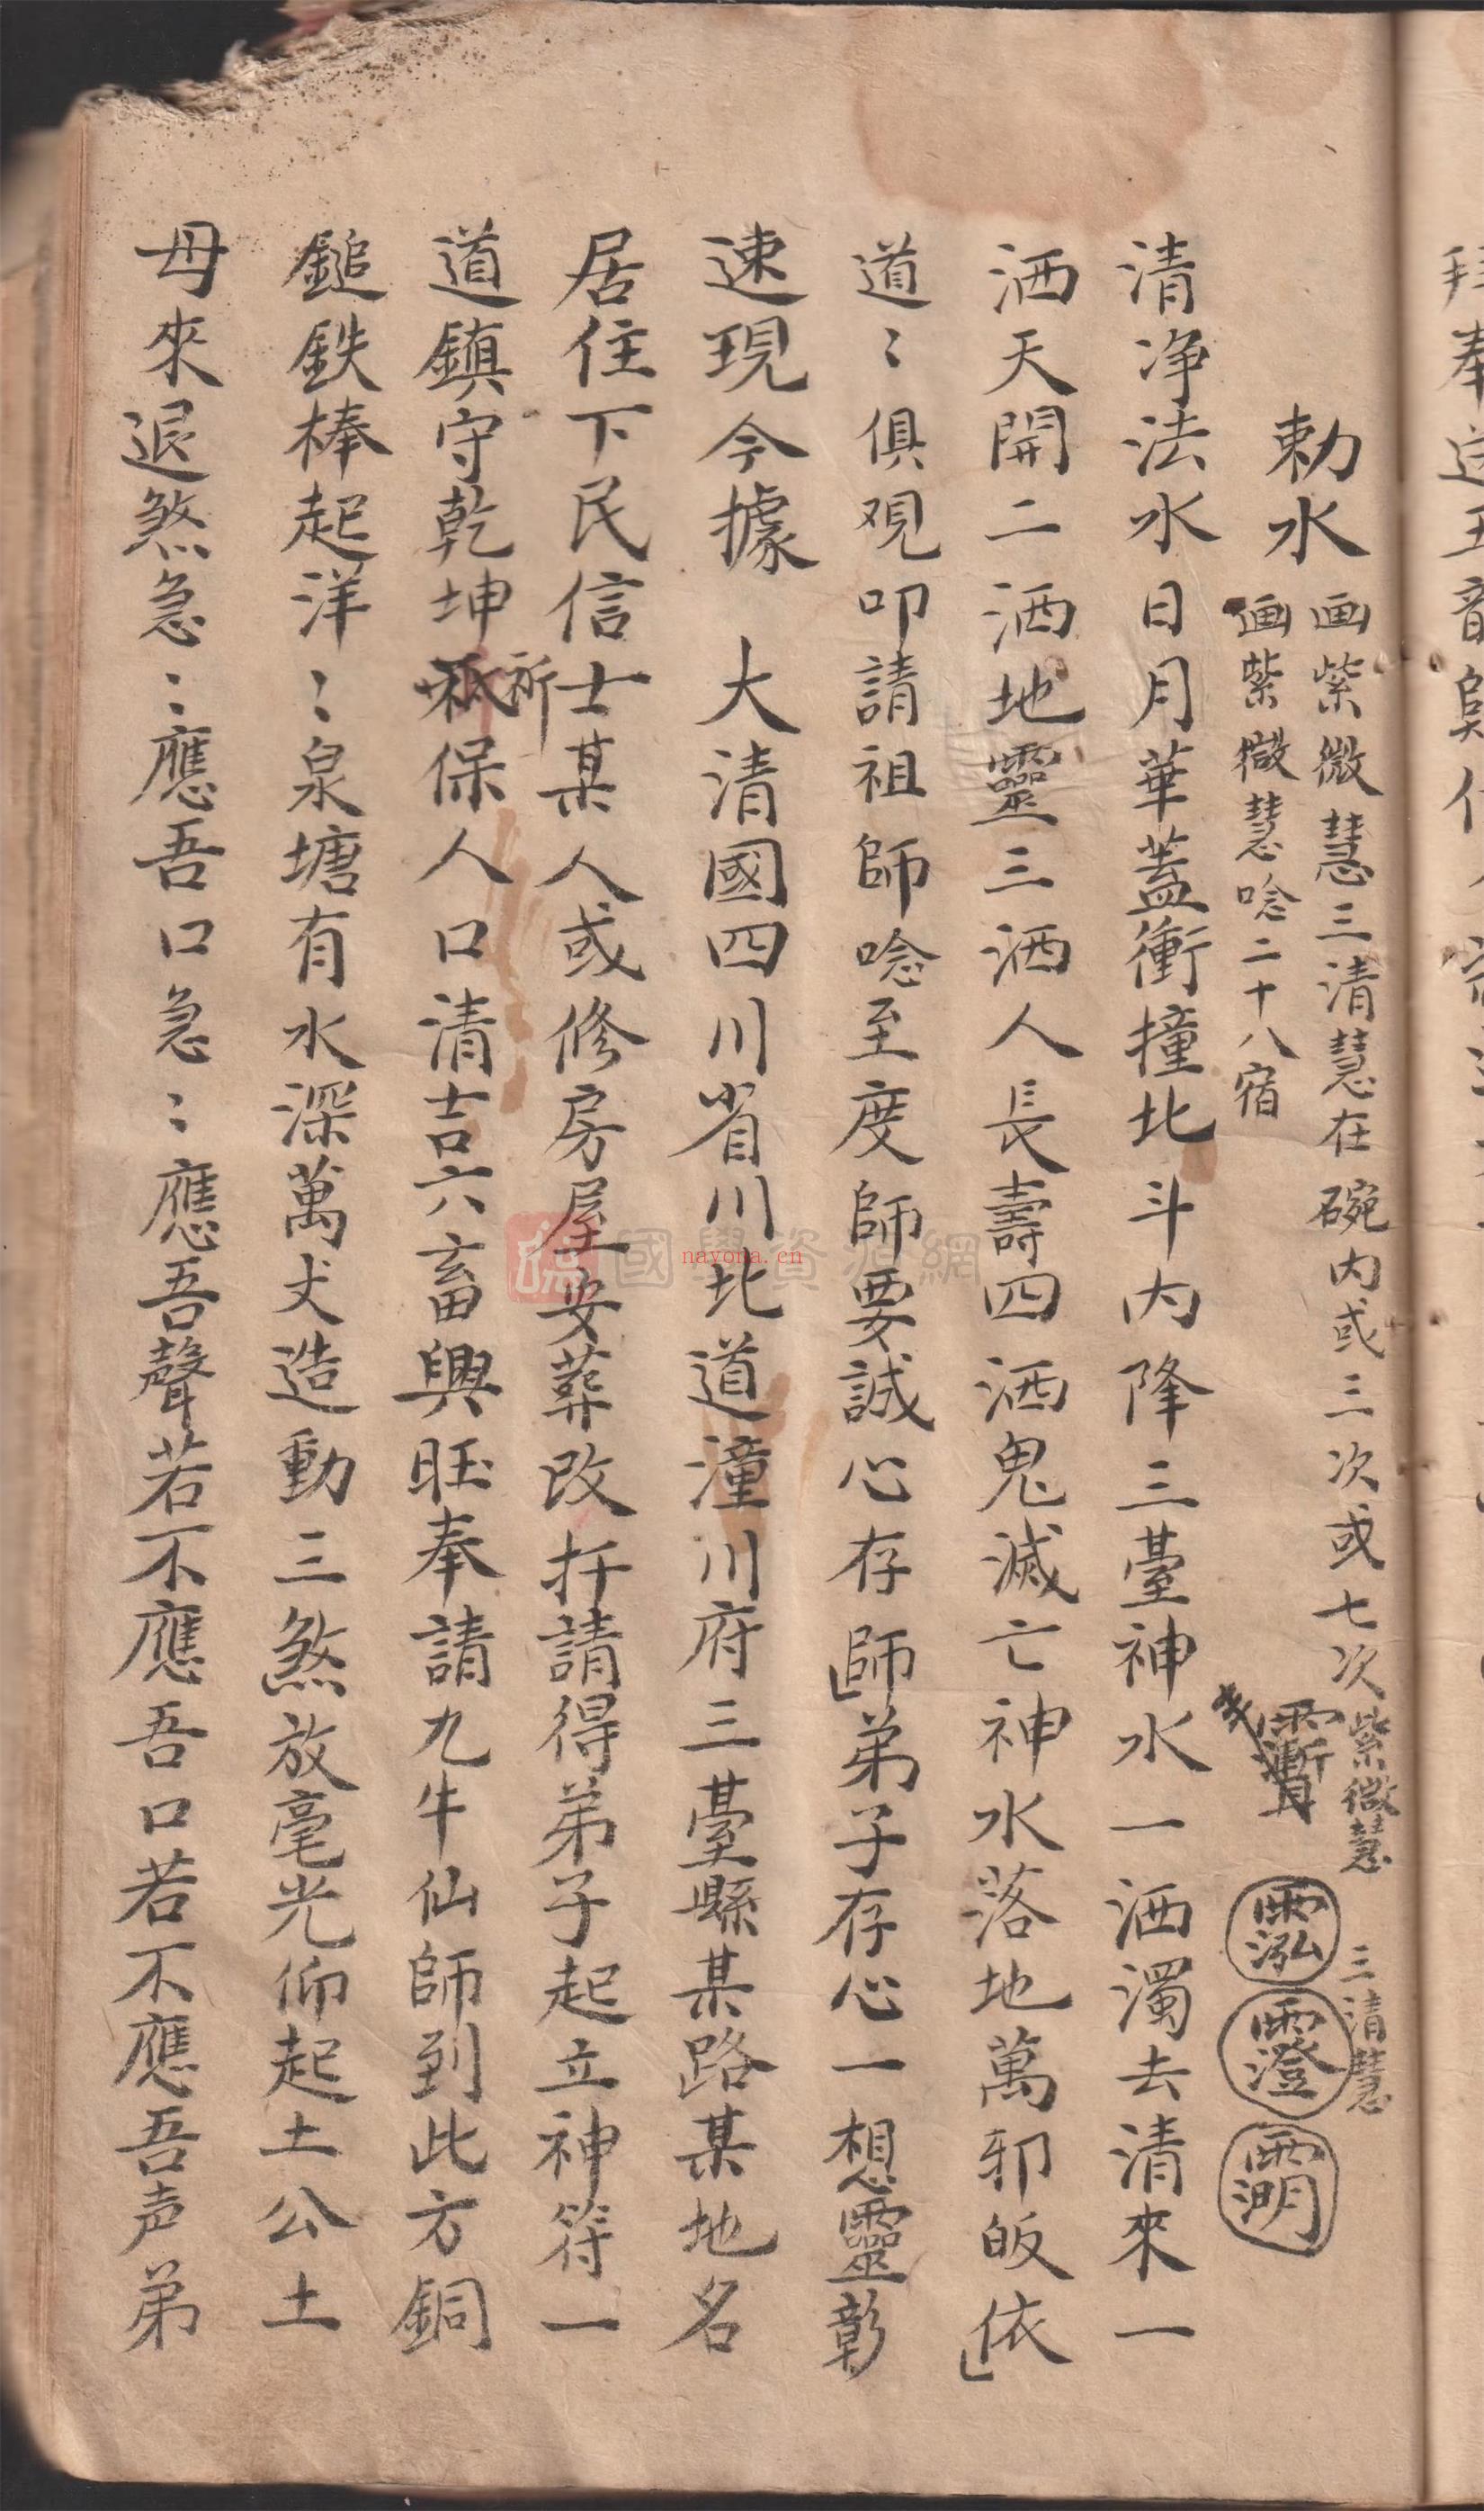 勅水
画紫微慧三清慧在碗内或三次或七次
画紫微慧唸二十八宿
紫微慧
三清慧
清净法水日月華蓋衝撞北斗内降三臺神水一洒濁去清來一
洒天開二洒地靈三洒人長壽四洒鬼滅亡神水落地萬邪皈依
道〻俱現叩請祖師唸至度師要誠心存師弟子存心一想靈彰
速現今據 大清國四川省川北道潼川府三臺縣某路某地名
居住下民信士某人或修房屋安葬改扦請得弟子起立神符一
道鎮守乾坤祈保人口清吉六畜興旺奉請九牛仙師到此方銅
鎚鉄棒起洋〻泉塘有水深萬丈造動三煞放毫光仰起土公土
母來退煞急〻應吾口急〻應吾聲若不應吾口若不應吾声弟
國學資源網
nayona.cn